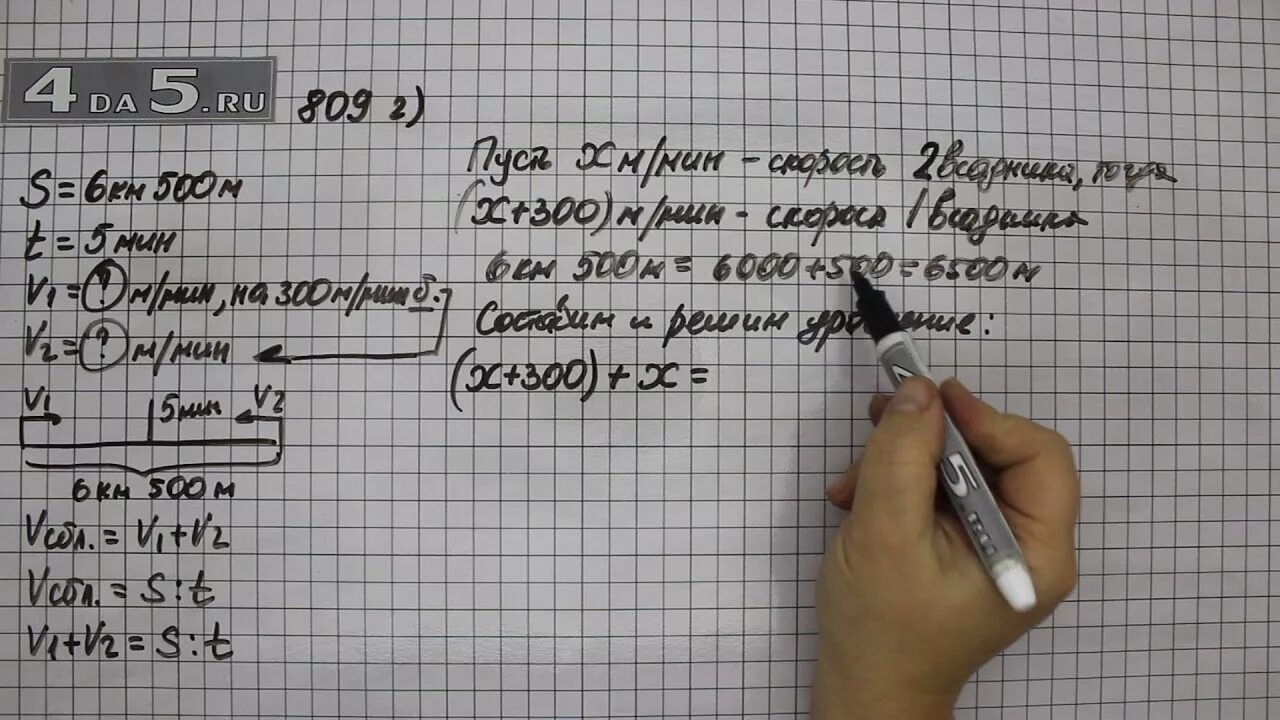 4DA5.RU
809 г)
S = 6км 500м
t = 5 мин
V₁ = ? м/мин, на 300 м/мин б.
V₂ = ? м/мин
V₁ 5 мин V₂
6 км 500 м
Vсбл. = V₁ + V₂
Vсбл. = S : t
V₁ + V₂ = S : t
Пусть x м/мин – скорость 2 всадника, тогда
(x+300) м/мин – скорость 1 всадника
6 км 500 м = 6000 + 500 = 6500 м
Составим и решим уравнение:
(x+300) + x =
5